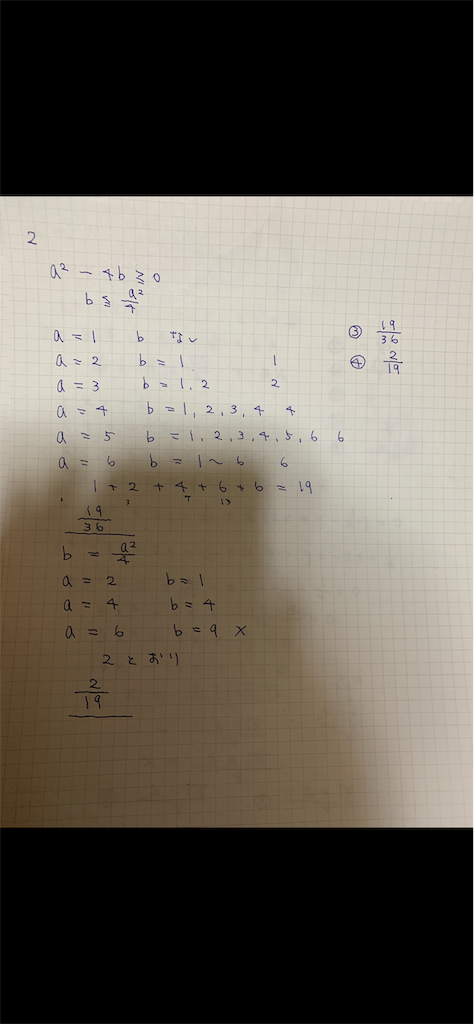 2
a² - 4b ≧ 0
b ≦ a²/4
a = 1 b なし
a = 2 b = 1 1
a = 3 b = 1, 2 2
a = 4 b = 1, 2, 3, 4 4
a = 5 b = 1, 2, 3, 4, 5, 6 6
a = 6 b = 1 ~ 6 6
1 + 2 + 4 + 6 + 6 = 19
3 7 13
19/36
b = a²/4
a = 2 b = 1
a = 4 b = 4
a = 6 b = 9 ×
2とおり
2/19
③ 19/36
④ 2/19